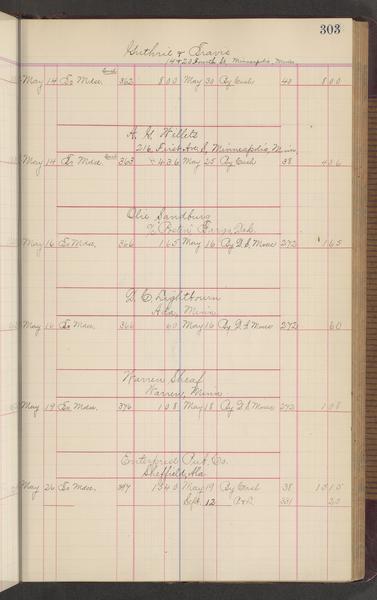 303
Guthrie & Travis
14 & 20 Fourth St, Minneapolis, Minn.
May 14 To Mdse. 362 8 00 May 30 By Cash 40 8 00
A. G. Willets
216 First Ave S, Minneapolis, Minn,
May 14 To Mdse 363 4 36 May 25 By Cash 38 4 36
Ole Sandburg
Fargo, Dak.
May 16 To Mdse. 366 1 65 May 16 By D. S. 272 1 65
D. C. Lightbourn
Ada, Minn
May 16 To Mdse. 366 60 May 16 By D. S. 272 60
Warren Sheaf
Warren, Minn
May 19 To Mdse. 376 1 08 May 18 By D. S. 272 1 08
Enterprise Pub. Co.
Sheffield, Ala
May 26 To Mdse. 397 13 40 May 19 By Cash 38 13 15
Sept. 12